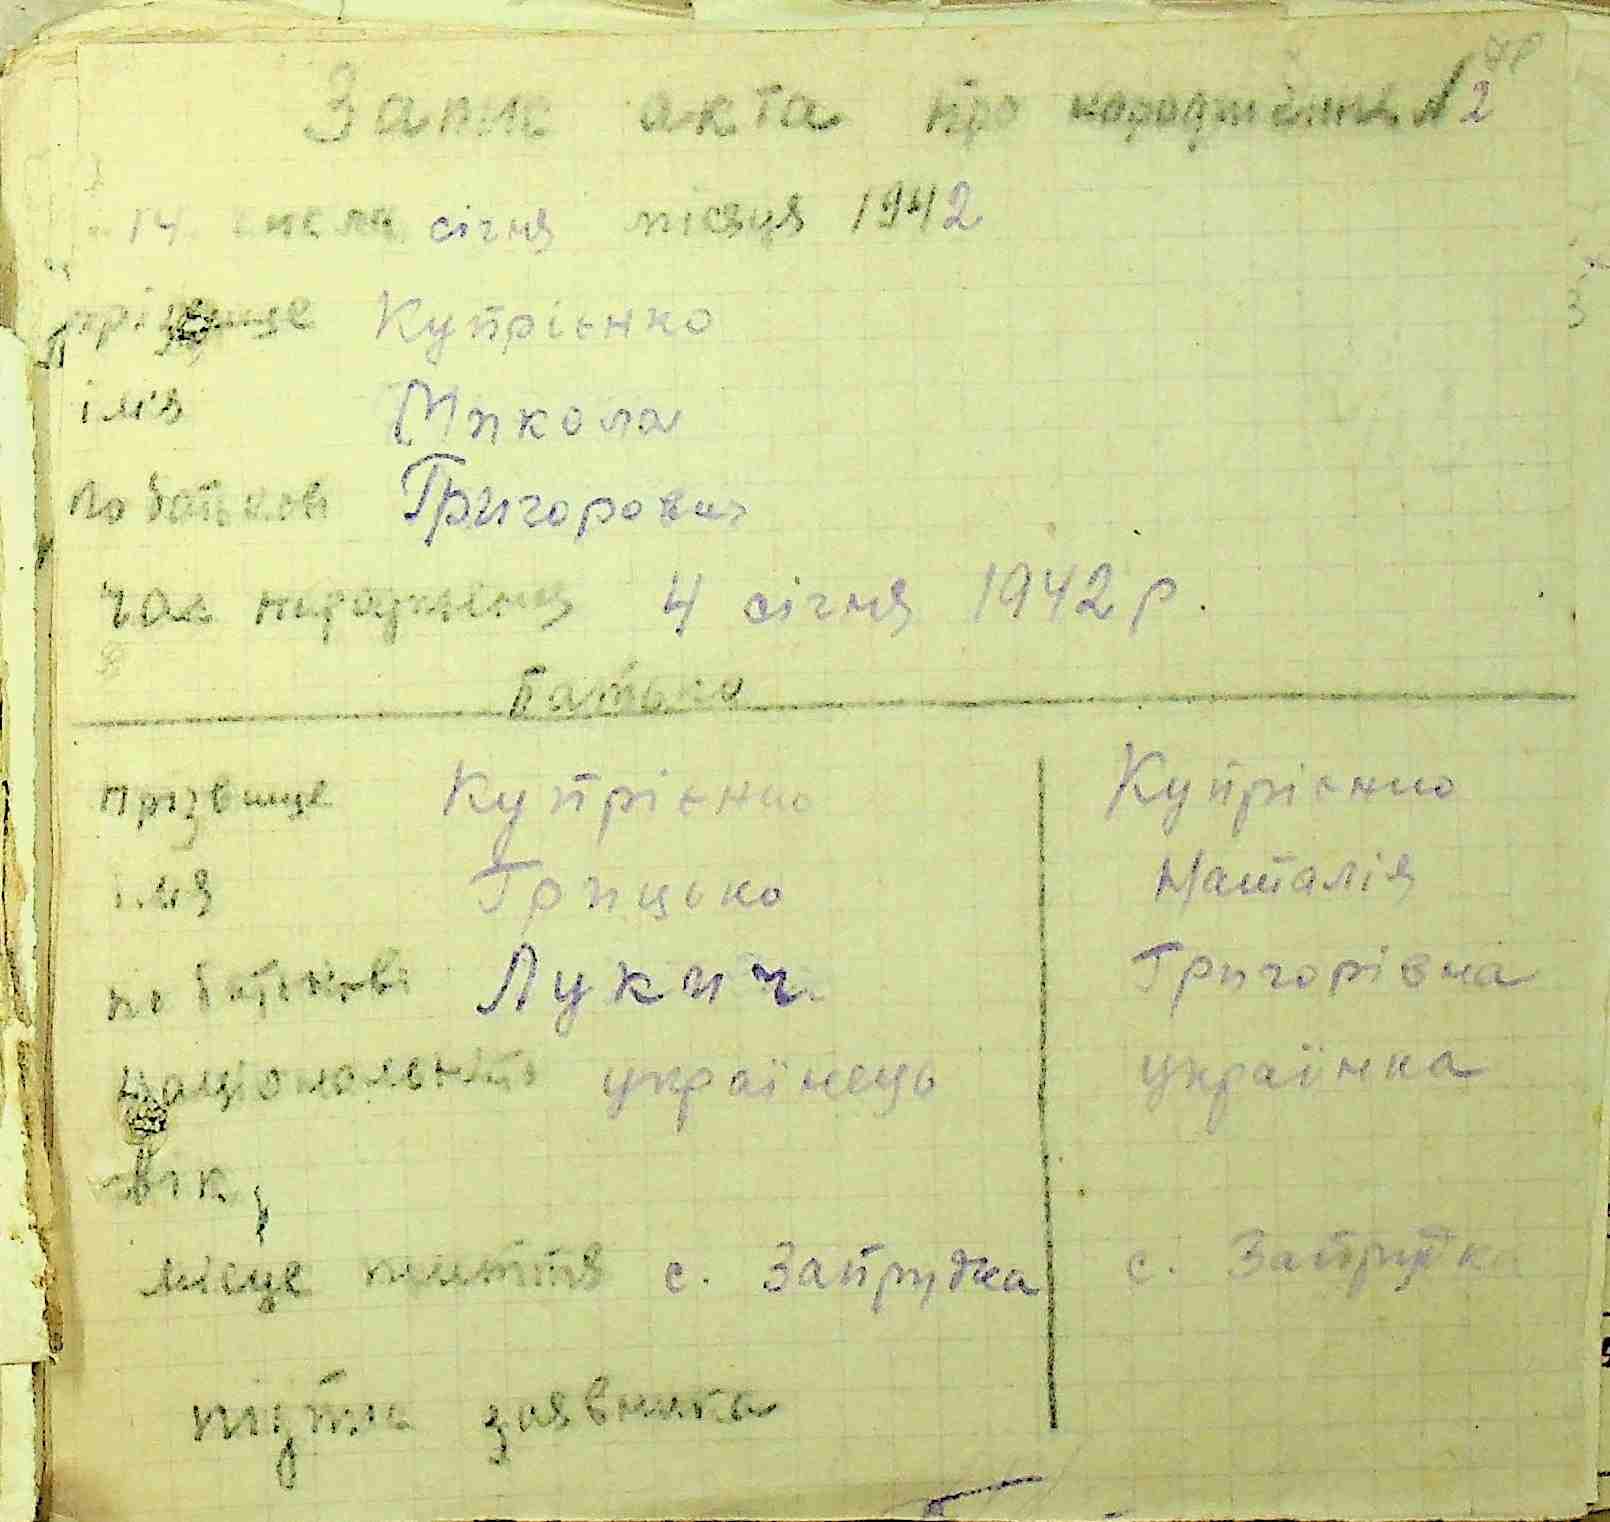 Запис акта про народження № 2
14 числа січня місяця 1942
прізвище Купрієнко
ім'я Микола
по батькові Григорович
час народження 4 січня 1942 р.
Батьки
прізвище Купрієнко Купрієнко
імя Грицько Наталія
по батькові Лукич Григорівна
національність українець українка
вік
місце життя с. Запрудка с. Запрудка
підпис заявника